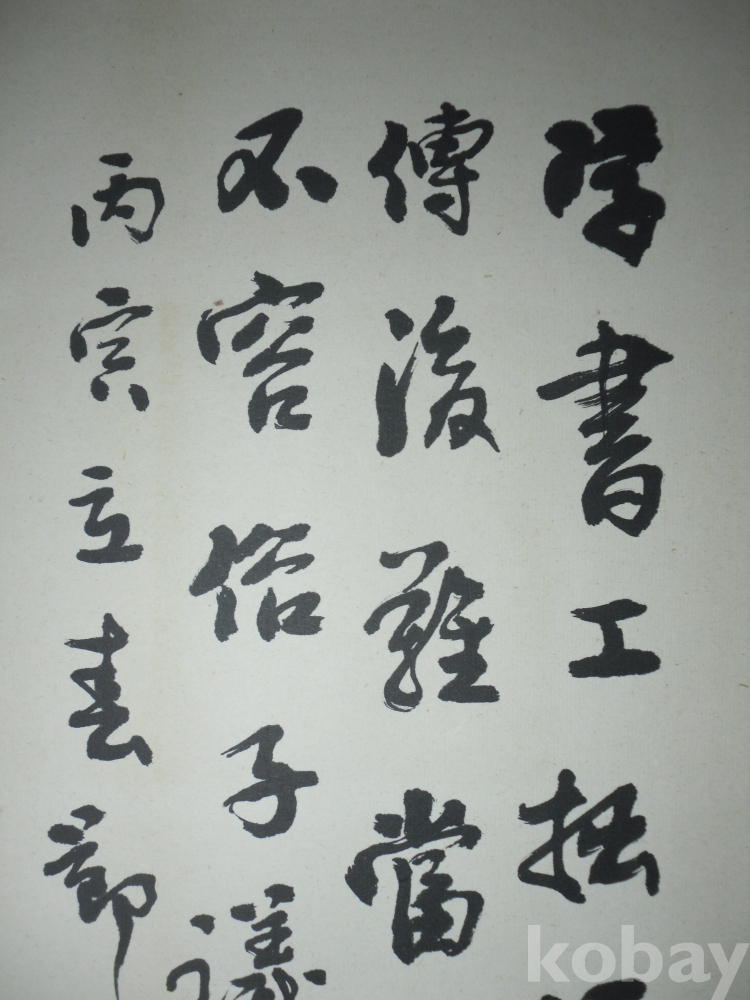 学書工拙
傳後難當
不容俗子議
丙寅立春節
kobay